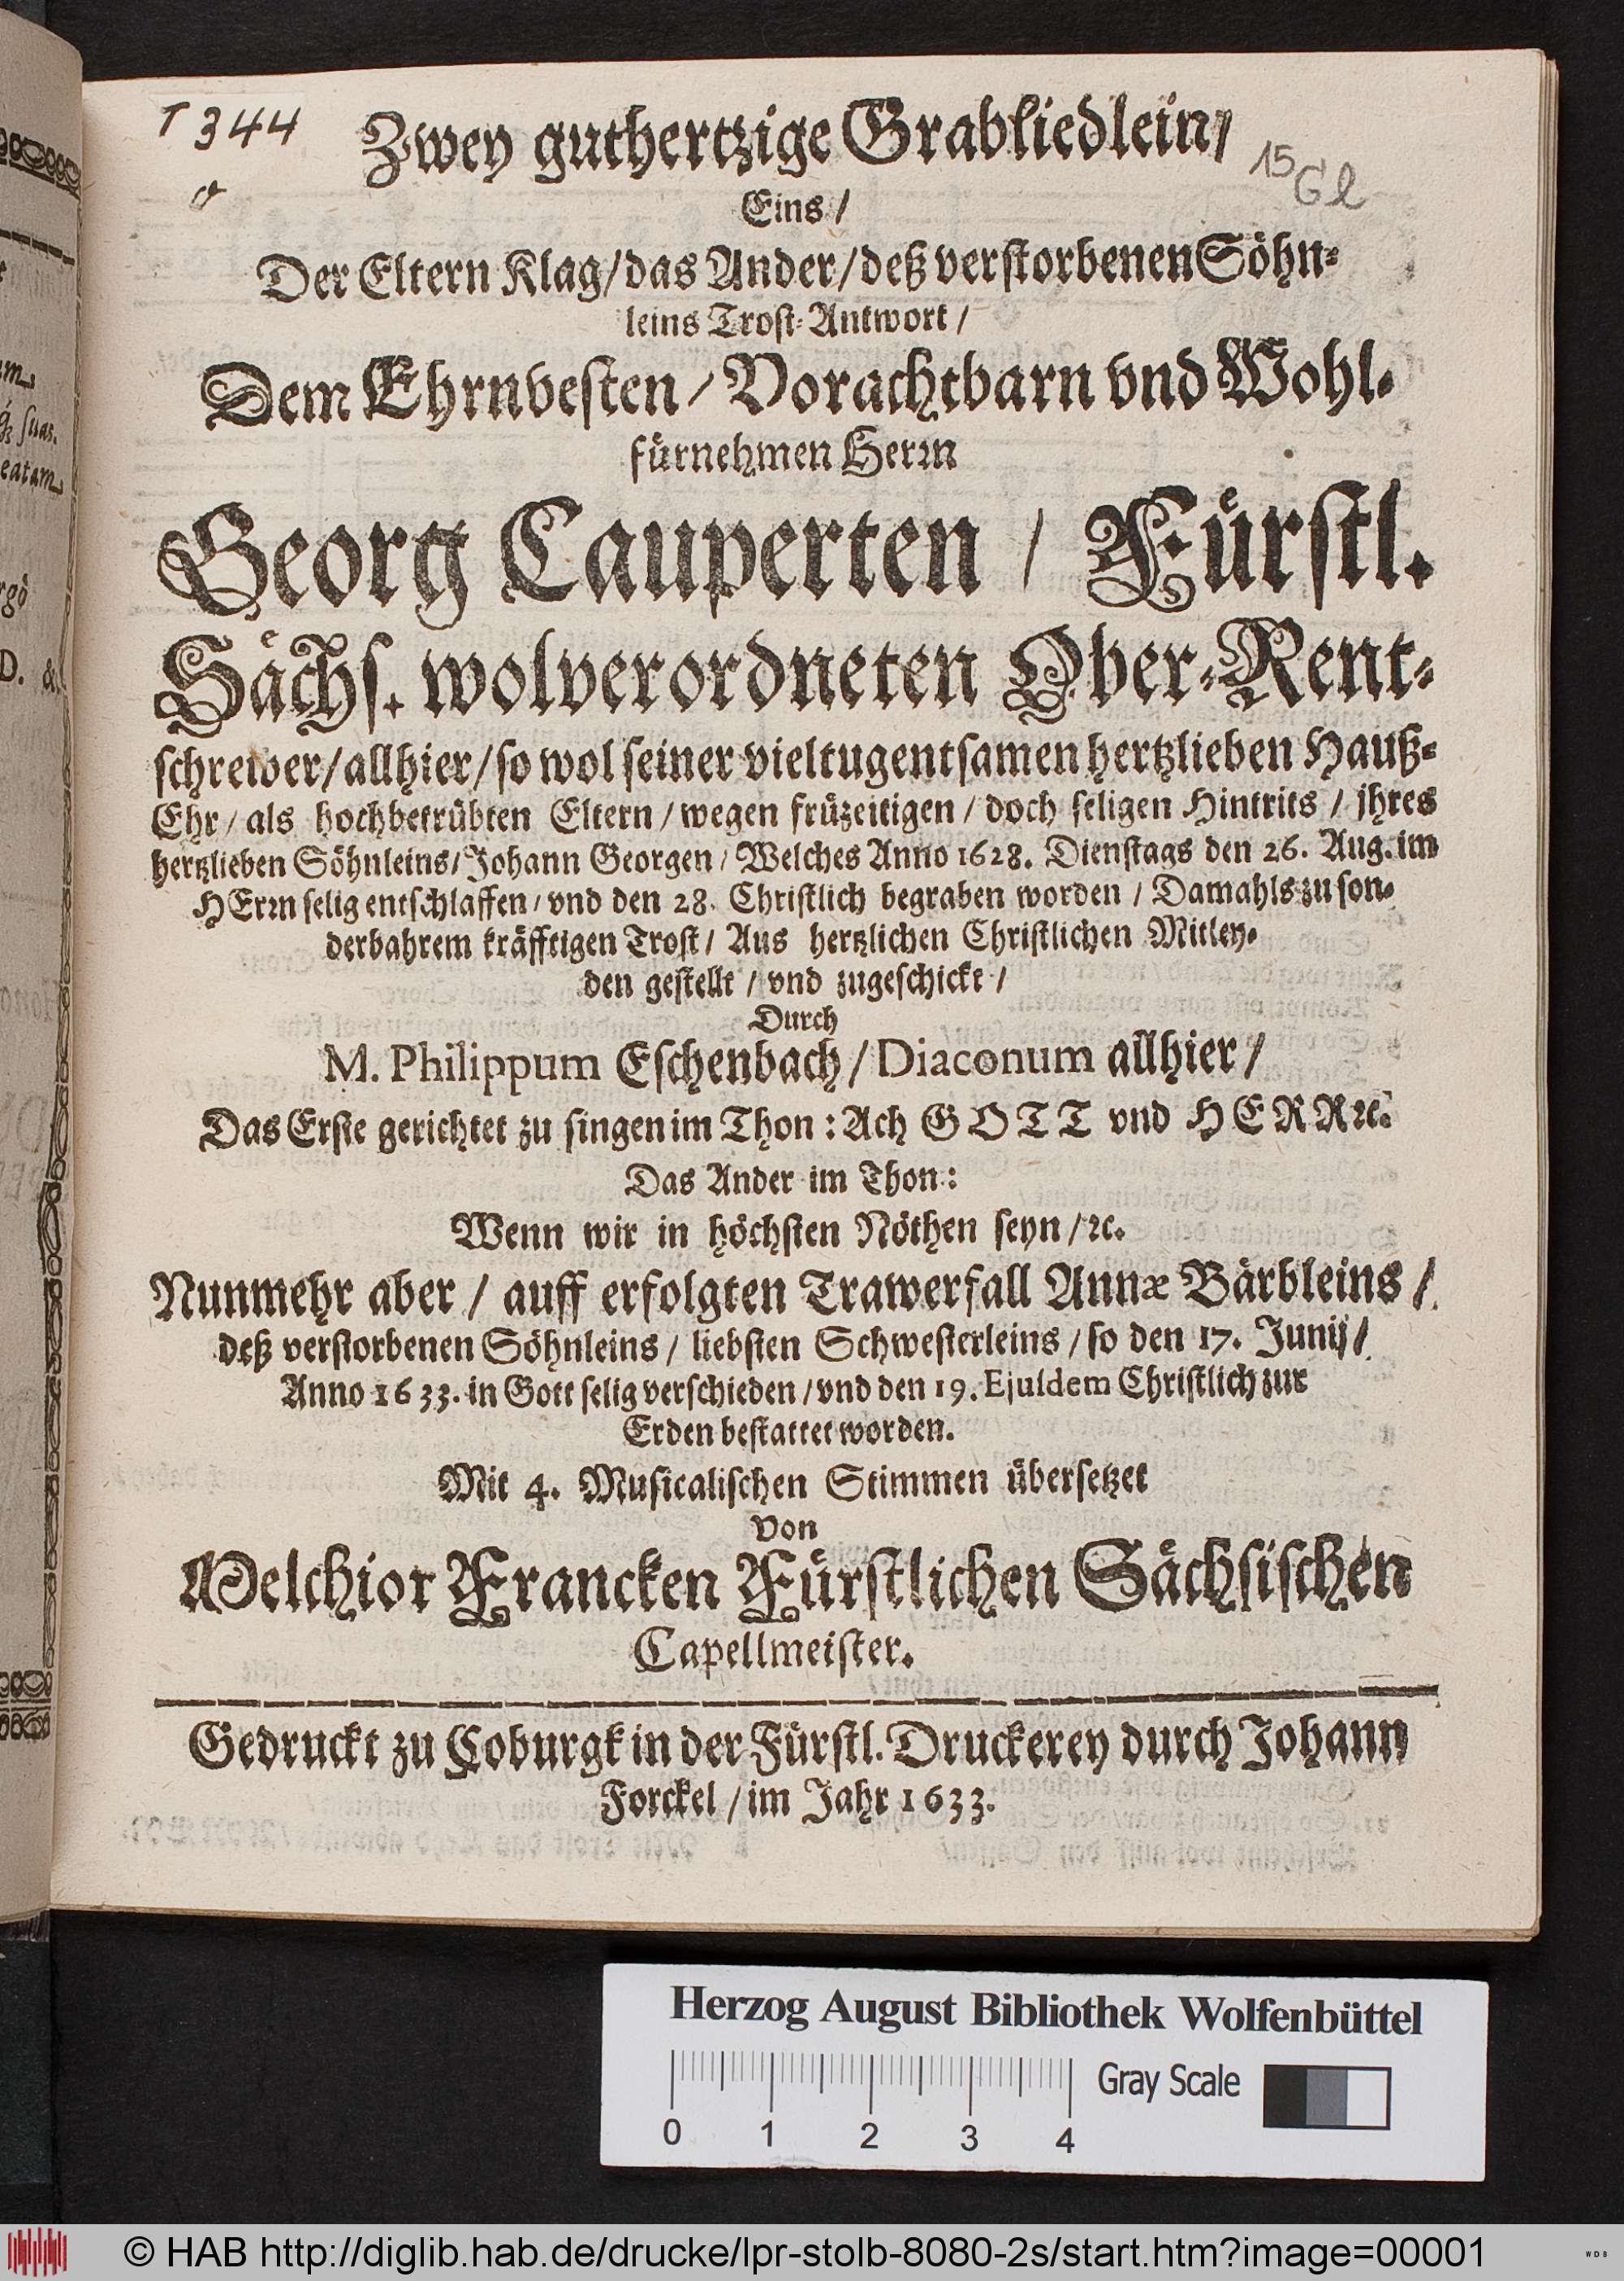 T 344
Zwey guthertzige Grabliedlein/
15
Gl
Eins/
Der Eltern Klag/das Ander/deß verstorbenen Söhn-
leins Trost-Antwort/
Dem Ehrnvesten/Vorachtbarn vnd Wohl-
fürnehmen Herrn
Georg Cauperten/Fürstl.
Sächs. wolverordneten Ober-Rent-
schreiber/allhier/so wol seiner vieltugentsamen hertzlieben Hauß-
Ehr/als hochbetrübten Eltern/wegen früzeitigen/doch seligen Hintrits/jhres
hertzlieben Söhnleins/Johann Georgen/Welches Anno 1628. Dienstags den 26. Aug. im
HErrn selig entschlaffen/vnd den 28. Christlich begraben worden/Damahls zu son-
derbahrem kräfftigen Trost/Aus hertzlichen Christlichen Mitley-
den gestellt/vnd zugeschickt/
Durch
M. Philippum Eschenbach/Diaconum allhier/
Das Erste gerichtet zu singen im Thon: Ach GOTT vnd HERR ꝛc.
Das Ander im Thon:
Wenn wir in höchsten Nöthen seyn/ꝛc.
Nunmehr aber/auff erfolgten Trawerfall Annæ Bärbleins/
deß verstorbenen Söhnleins/liebsten Schwesterleins/so den 17. Junij/
Anno 1633. in Gott selig verschieden/vnd den 19. Ejusdem Christlich zur
Erden bestattet worden.
Mit 4. Musicalischen Stimmen übersetzet
Von
Melchior Francken Fürstlichen Sächsischen
Capellmeister.
Gedruckt zu Coburgk in der Fürstl. Druckerey durch Johann
Forckel/im Jahr 1633.
Herzog August Bibliothek Wolfenbüttel
Gray Scale
0 1 2 3 4
© HAB http://diglib.hab.de/drucke/lpr-stolb-8080-2s/start.htm?image=00001